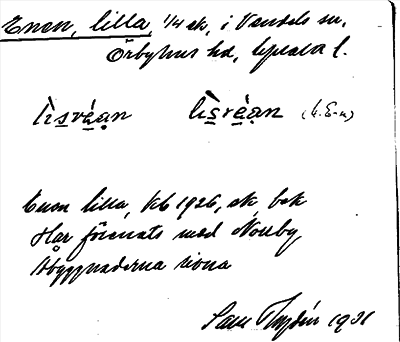 Enen, lilla, 1/4 sk, i Vendels sn,
Örbyhus hd, Upsala l.
lìsvé̱ạn lìs̱ré̱ạn (l. E-n)
Enen lilla, KB 1926, sk, bok
Har förenats med Norrby
Åbyggnaderna rivna
1931